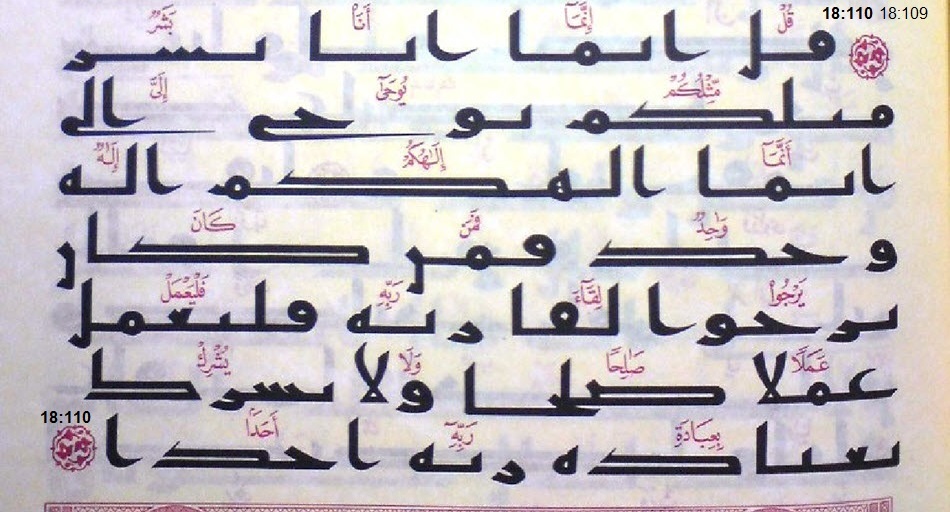 18:110 18:109
قُلْ إِنَّمَآ أَنَا۠ بَشَرٌ
قل انما انا بشر
مِّثْلُكُمْ يُوحَىٰٓ إِلَىَّ
مثلكم يوحى الى
أَنَّمَآ إِلَـٰهُكُمْ إِلَـٰهٌ
انما الهكم اله
وَٰحِدٌ فَمَن كَانَ
وحد فمن كان
يَرْجُوا۟ لِقَآءَ رَبِّهِۦ فَلْيَعْمَلْ
يرجوا لقا ربه فليعمل
عَمَلًا صَـٰلِحًا وَلَا يُشْرِكْ
عملا صلحا ولا يشرك
18:110
بِعِبَادَةِ رَبِّهِۦٓ أَحَدًۢا
بعباده ربه احدا